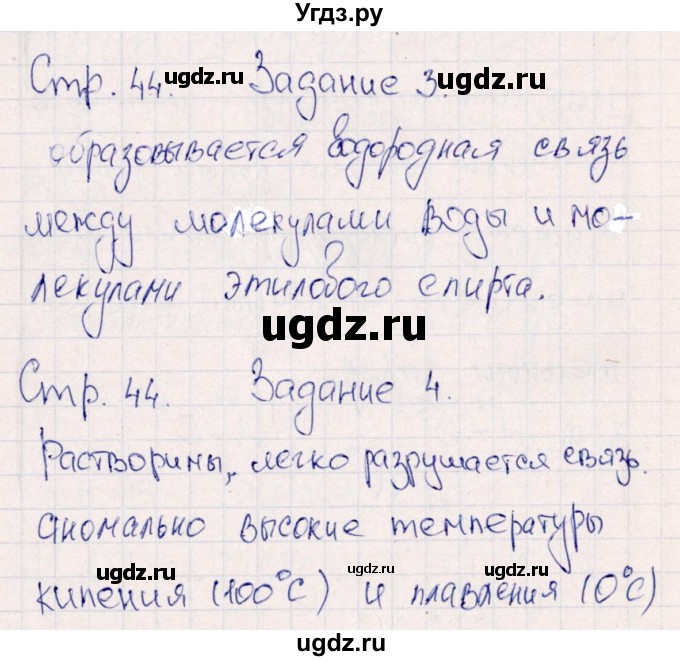 Угдз.ру
Стр. 44. ugdz.ru Задание 3. ugdz.ru
образовывается водородная связь
между молекулами воды и мо-
лекулами этилового спирта.
ugdz.ru
Стр. 44. Задание 4.
Растворимы, легко разрушается связь.
аномально высокие температуры
ugdz.ru ugdz.ru ugdz.ru
кипения (100°С) и плавления (0°С)
ugdz.ru